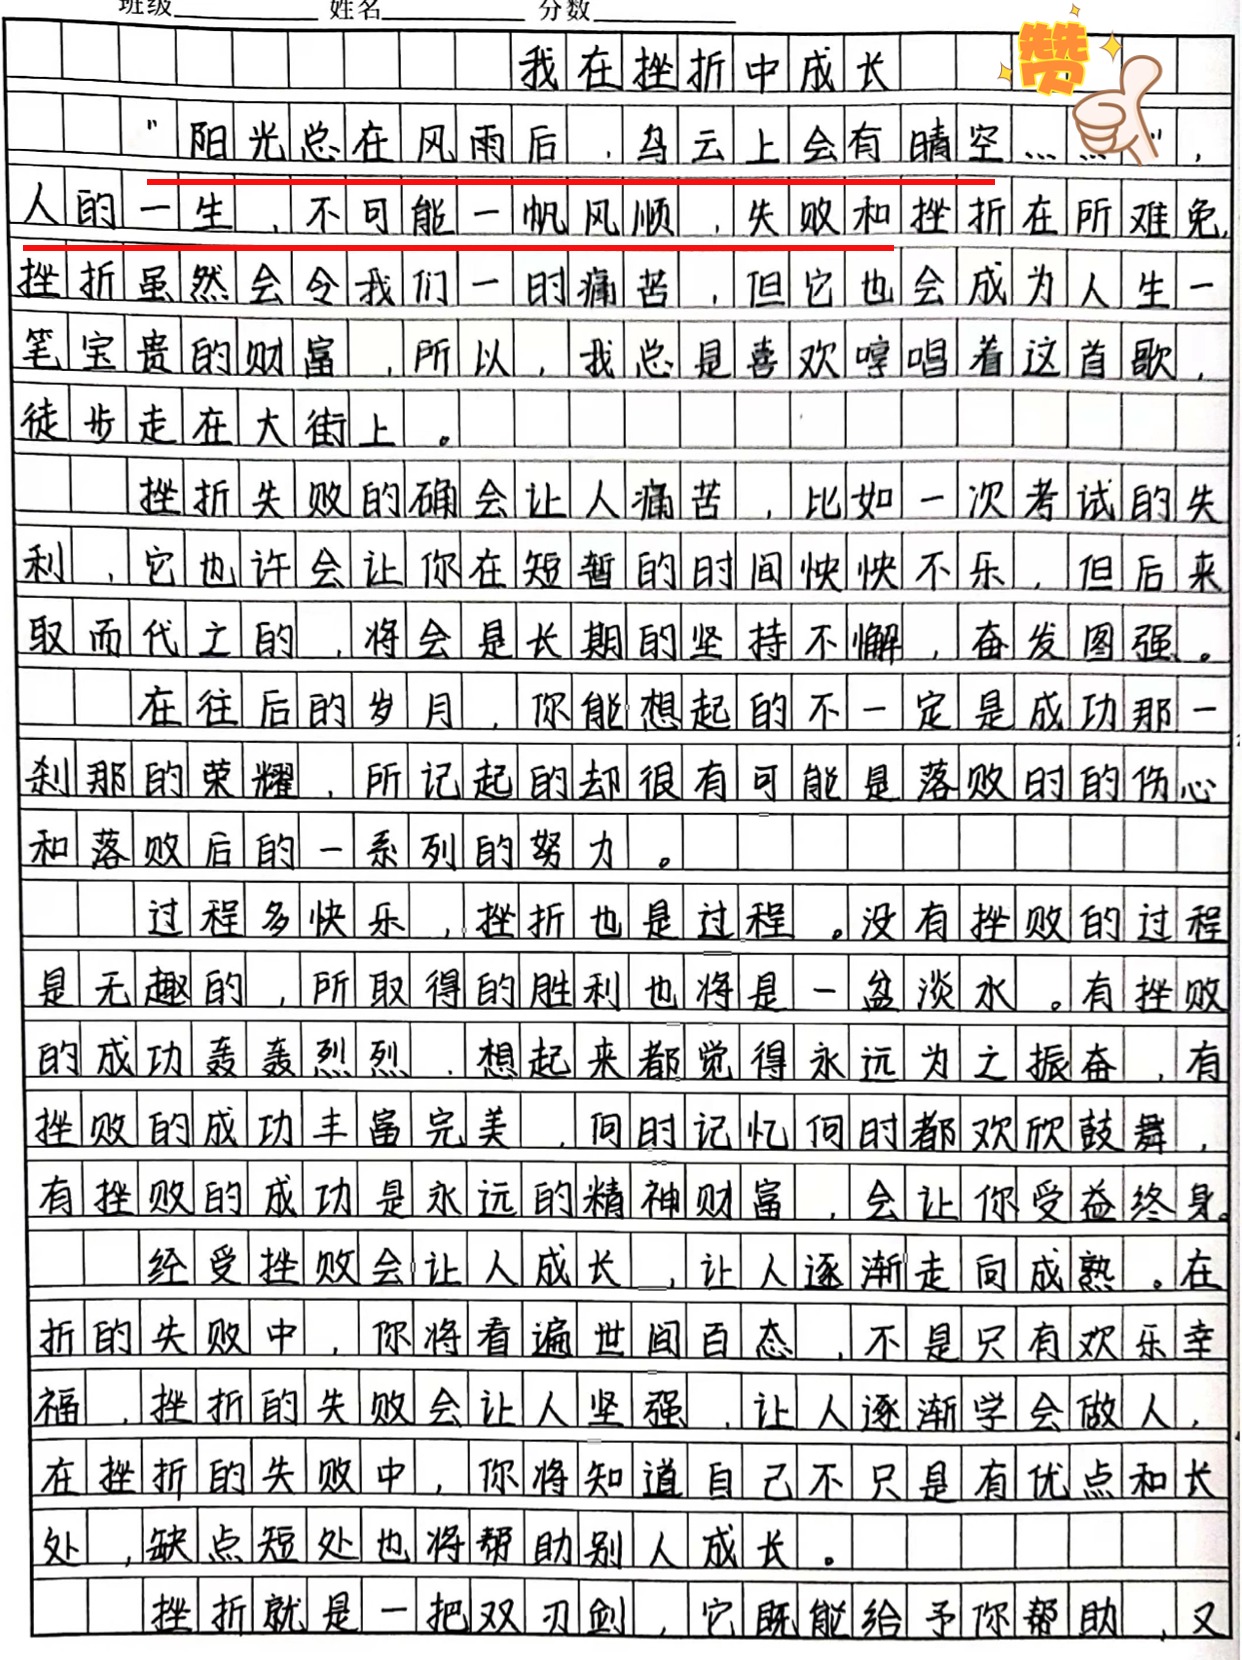 班级 姓名 分数
赞
我在挫折中成长
"阳光总在风雨后，乌云上会有晴空……"，
人的一生，不可能一帆风顺，失败和挫折在所难免，
挫折虽然会令我们一时痛苦，但它也会成为人生一
笔宝贵的财富，所以，我总是喜欢哼唱着这首歌，
徒步走在大街上。
挫折失败的确会让人痛苦，比如一次考试的失
利，它也许会让你在短暂的时间怏怏不乐，但后来
取而代之的，将会是长期的坚持不懈，奋发图强。
在往后的岁月，你能想起的不一定是成功那一
刹那的荣耀，所记起的却很有可能是落败时的伤心
和落败后的一系列的努力。
过程多快乐，挫折也是过程。没有挫败的过程
是无趣的，所取得的胜利也将是一盆淡水。有挫败
的成功轰轰烈烈，想起来都觉得永远为之振奋，有
挫败的成功丰富完美，何时记忆何时都欢欣鼓舞，
有挫败的成功是永远的精神财富，会让你受益终身。
经受挫败会让人成长，让人逐渐走向成熟。在
折的失败中，你将看遍世间百态，不是只有欢乐幸
福，挫折的失败会让人坚强，让人逐渐学会做人，
在挫折的失败中，你将知道自己不只是有优点和长
处，缺点短处也将帮助别人成长。
挫折就是一把双刃剑，它既能给予你帮助，又